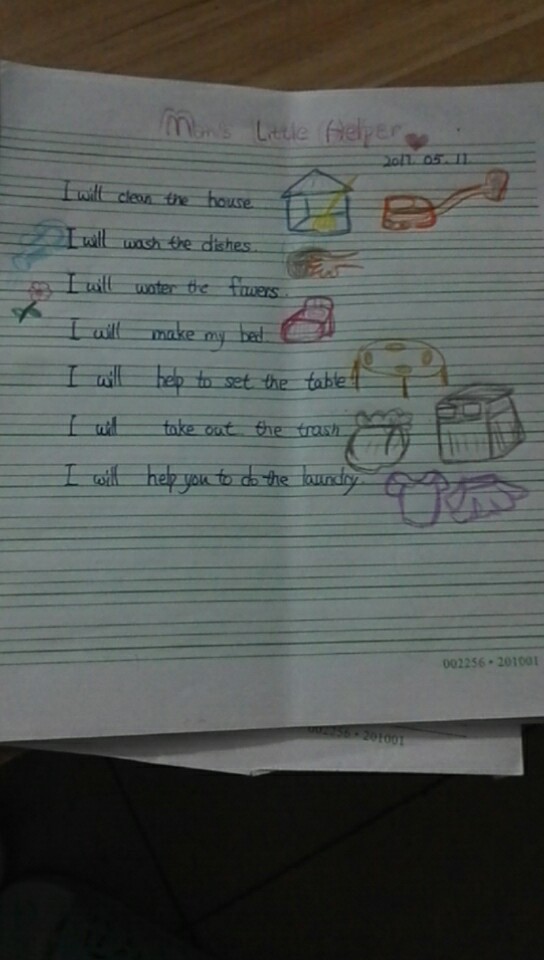 Mom's Little Helper
2017.05.11
I will clean the house
I will wash the dishes.
I will water the flowers.
I will make my bed
I will help to set the table
I will take out the trash
I will help you to do the laundry.
002256·201001
002256·201001